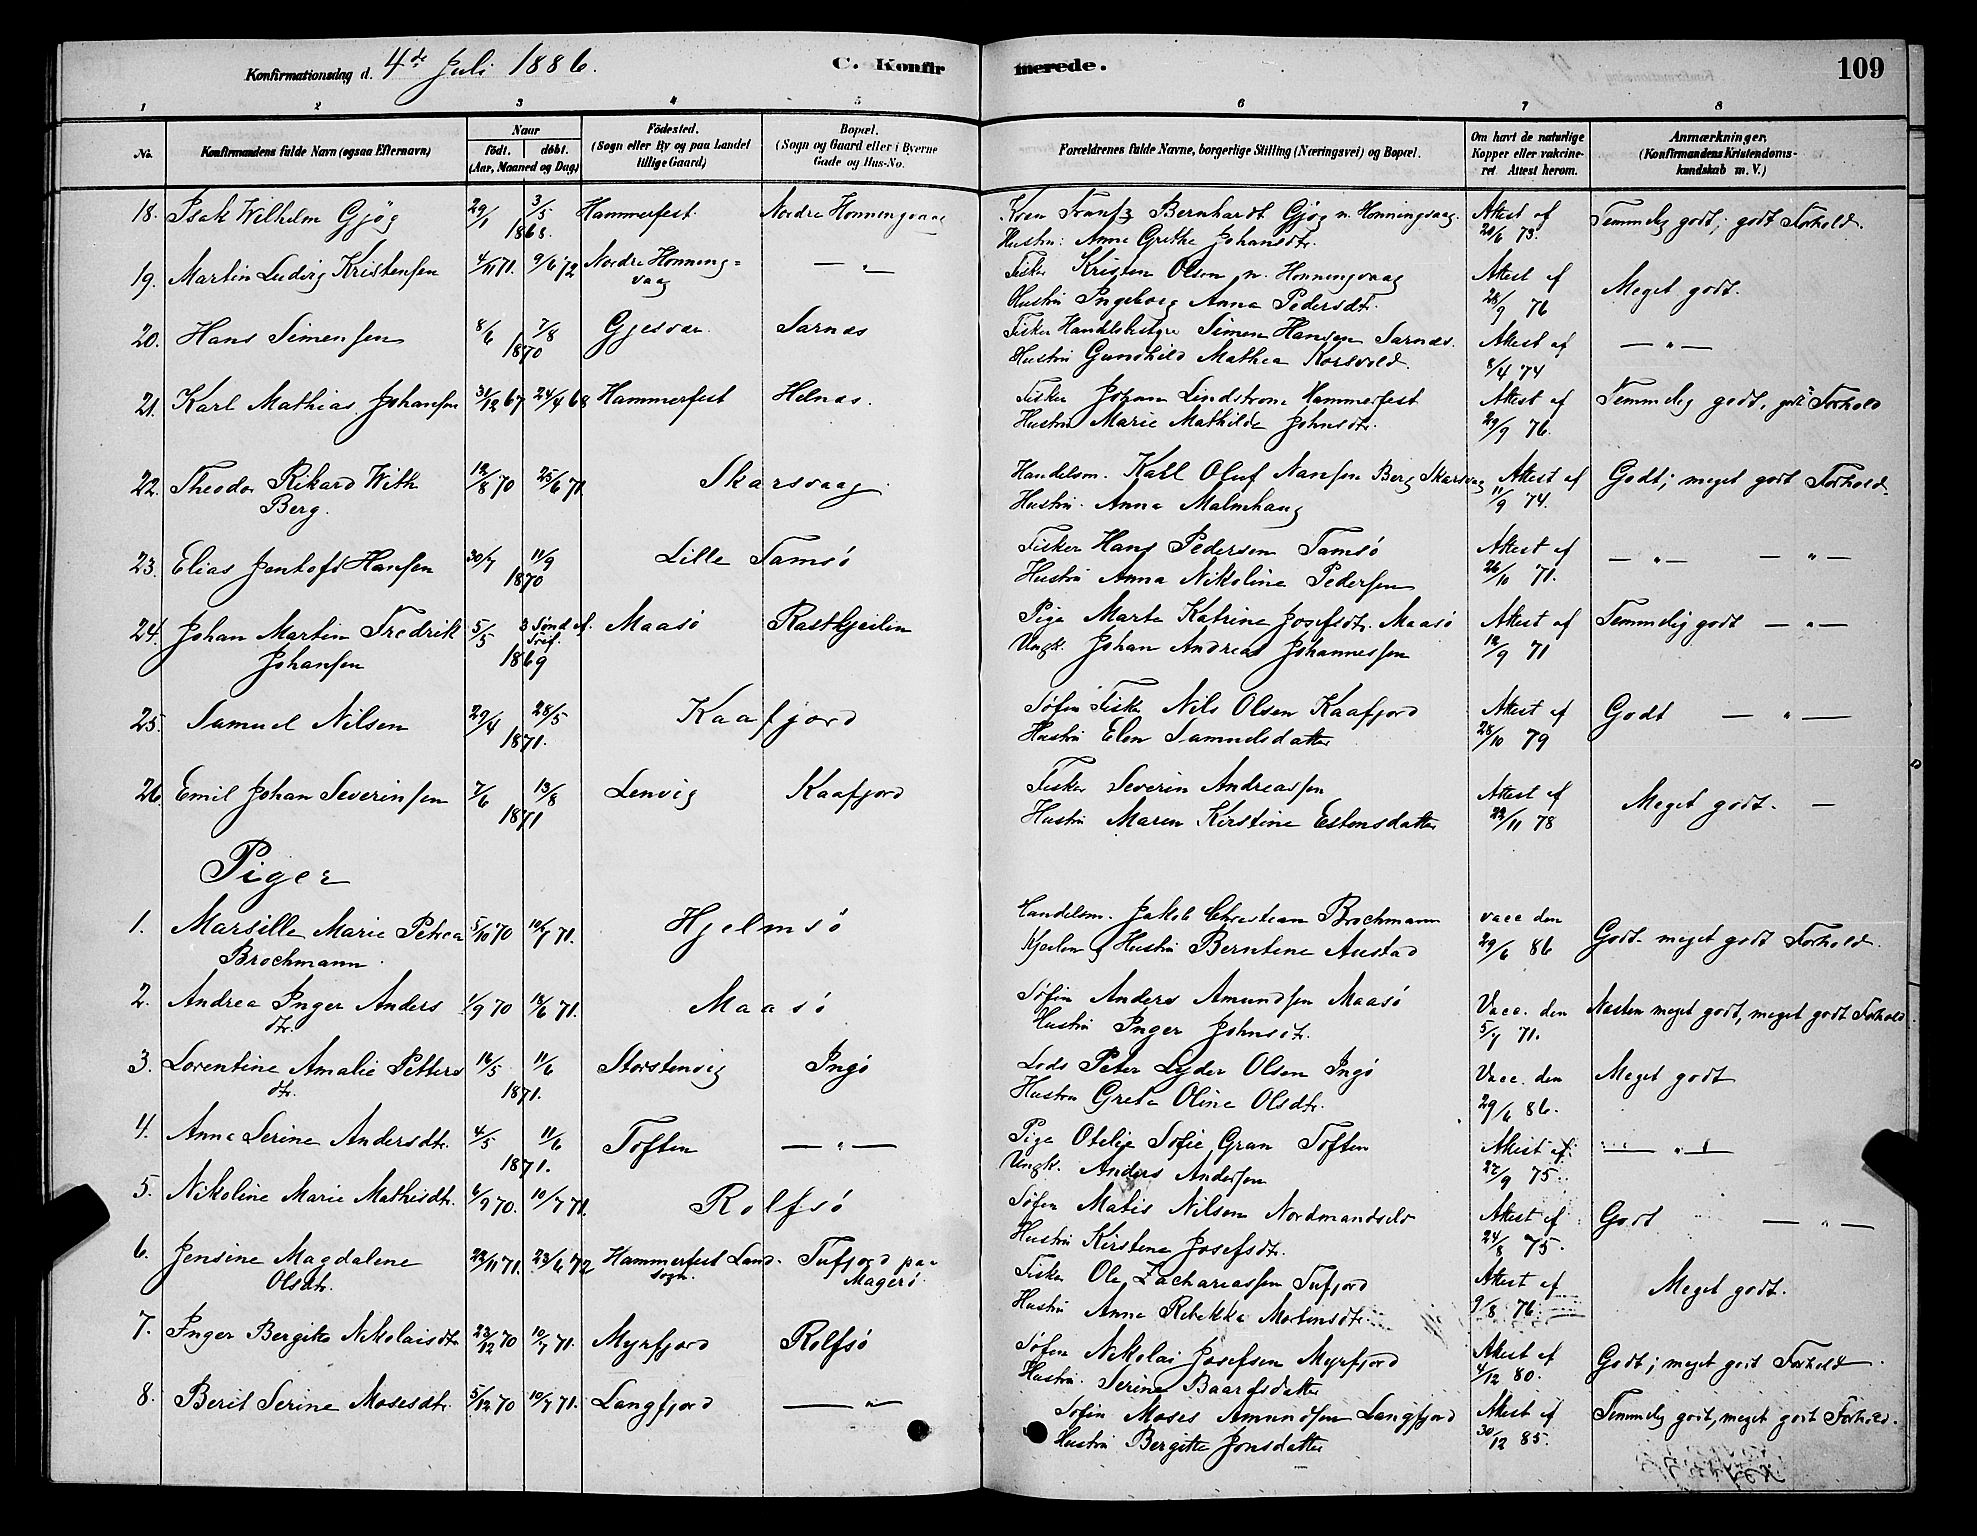 Konfirmationsdag d. 4de Juli 1886. C. Konfirmerede. 109
1 2 3 4 5 6 7 8
No. Konfirmandens fulde Navn (ogsaa Efternavn)
Naar født. døbt. (Aar, Maaned og Dag)
Fødested. (Sogn eller By og paa Landet tillige Gaard)
Bopæl. (Sogn og Gaard eller i Byerne Gade og Hus-No.
Forældrenes fulde Navne, borgerlige Stilling (Næringsvei) og Bopæl.
Om havt de naturlige Kopper eller vakcineret. Attest herom.
Anmærkninger. (Konfirmandens Kristendomskundskab m. V.)
18. Isak Wilhelm Gjøg 29/1 3/5 1868. Hammerfest Nordre Honningsvaag Bernhardt Gjøg n. Honningsvaag. Attest af 28/6 73. Temmelig godt; godt Forhold.
Hustru: Anne Grethe Johansdtr.
19. Martin Ludvig Kristensen 4/11 71. 9/6 72 Nordre Honningsvaag — " — Fisker Kristen Olsen n. Honningsvaag Attest af 28/9 76 Meget godt.
Hustru Ingeborg Anna Pedersdtr.
20. Hans Simensen 8/6 7/8 1870 Gjesvær Sarnæs Fisker Handelsbestyrer Simen Hansen Sarnæs. Attest af 8/4 74 — " —
Hustru Gunhild Mathea Korsvold.
21. Karl Mathias Johansen 31/12 67 24/4 68 Hammerfest Helnæs. Fisker Johan Lindstrøm Hammerfest Attest af 29/9 76. Temmelig godt, godt Forhold
Hustru Marie Mathilde Johnsdtr.
22. Theodor Rikard With Berg. 12/8 70 25/6 71. Skarsvaag Handelsm. Karl Oluf Nansen Berg Skarsvaag Attest af 11/9 74. Godt; meget godt Forhold.
Hustru. Anna Malmhaug
23. Elias Jentoft Hansen 30/7 11/9 1870 Lille Tamsø Fisker Hans Pedersen Tamsø Attest af 26/10 71. — " — — " —
Hustru Anna Nikoline Pedersen
24. Johan Martin Fredrik Johansen 5/5 3 Sønd. ef. Tref. 1869 Maasø Pige Marte Katrine Josefsdtr. Maasø Attest af 12/9 71 Temmelig godt — " —
Ungk. Johan Andreas Johannessen
25. Samuel Nilsen 29/4 28/5 1871. Kaafjord Søfin Fisker Nils Olsen Kaafjord Attest af 28/10 79 Godt — " —
Hustru Elen Samuelsdatter
26. Emil Johan Severinsen 7/6 13/8 1871 Lenvig Kaafjord Fisker Severin Andreassen Attest af 22/11 78 Meget godt. —
Hustru Maren Kirstine Estensdatter
Piger
1. Marsille Marie Petrea Brochmann. 5/10 70 10/7 71. Hjelmsø Handelsm. Jakob Christian Brochmann vacc den 29/6 86 Godt. meget godt Forhold.
Kjeilen Hustru Berntine Austad
2. Andrea Inger Andersdtr. 1/9 70 18/6 71. Maasø Søfin Anders Amundsen Maasø Vacc. den 5/7 71. Næsten meget godt, meget godt Forhold
Hustru Inger Johnsdtr.
3. Lorentine Amalie Pettersdtr. 16/5 11/6 1871. Storstenvig Ingø Lods Peter Lyder Olsen Ingø Vacc. den 29/6 86. Meget godt
Hustru Grete Oline Olsdtr.
4. Anna Serine Andersdtr. 4/5 11/6 1871. Toften — " — Pige Otelje Sofie Gran Toften Attest af 27/9 75. — " —
Ungk. Anders Andersen
5. Nikoline Marie Mathisdtr. 6/9 70. 10/7 71. Rolfsø Søfin Matis Nilsen Nordmandseid Attest af 24/8 75. Godt — " —
Hustru Kirstine Josefsdtr.
6. Jensine Magdalene Olsdtr. 22/11 71. 23/6 72 Hammerfest Landsogn Tufjord paa Magerø. Fisker Ole Zachariassen Tufjord Attest af 9/8 76. Meget godt.
Hustru Anne Rebekka Mortensdtr.
7. Inger Bergitte Nikolaisdtr 23/12 70 10/7 71. Myrfjord Rolfsø Søfin Nikolai Josefsen Myrfjord Attest af 4/12 80. Godt; meget godt Forhold.
Hustru. Serine Baardsdatter
8. Berit Serine Mosesdtr. 5/12 70 10/7 71. Langfjord — " — Søfin Moses Amundsen Langfjord Attest af 30/12 85. Temmelig godt, meget godt Forhold.
Hustru Bergitte Jonsdatter